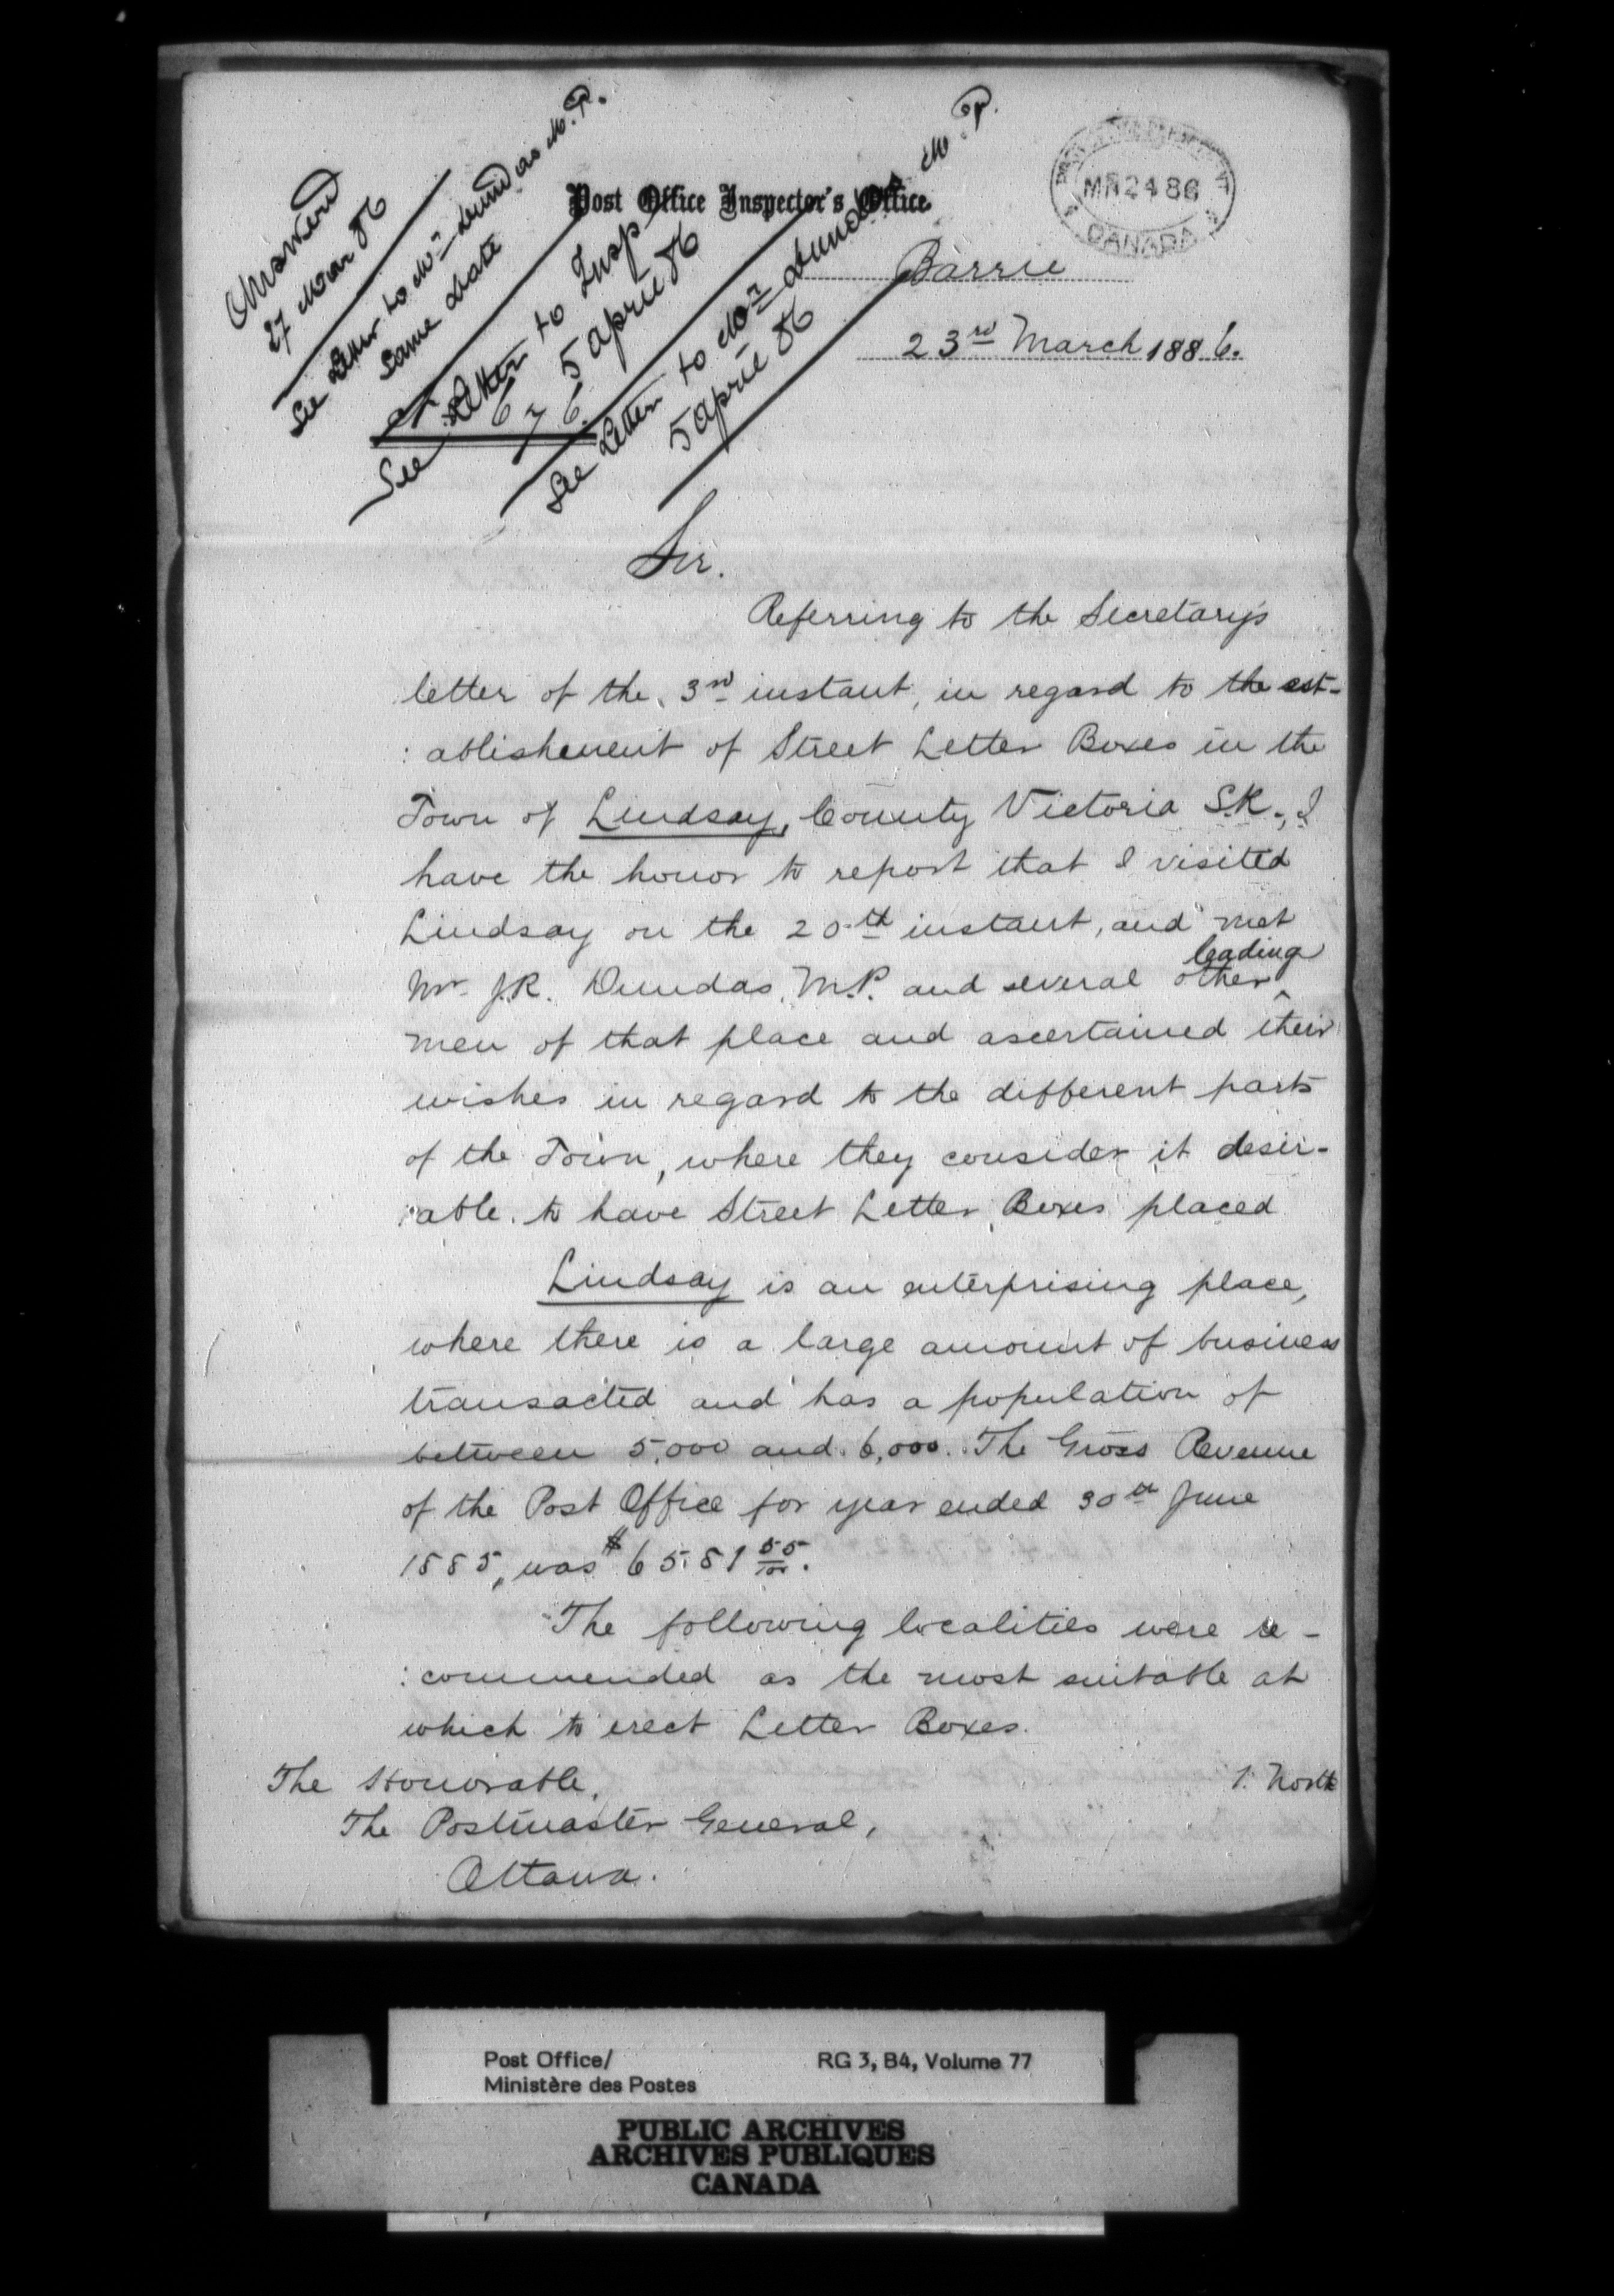 Answered
27 Mar 86
See Letter to Mr. Dundas M.P.
Same date
See Letter to Insp.
5 April 86
676.
See Letter to Mr. Dundas M.P.
5 April 86
Post Office Inspector's Office
MR 24 86
CANADA
Barrie
23rd March 1886.
Sir.
Referring to the Secretary's
letter of the 3rd instant, in regard to the est-
:ablishment of Street Letter Boxes in the
Town of Lindsay, County Victoria S.R., I
have the honor to report that I visited
Lindsay on the 20th instant, and met
leading
Mr. J.R. Dundas, M.P. and several other ^
men of that place and ascertained their
wishes in regard to the different parts
of the Town, where they consider it desir-
:able to have Street Letter Boxes placed
Lindsay is an enterprising place,
where there is a large amount of business
transacted and has a population of
between 5,000 and 6,000. The Gross Revenue
of the Post Office for year ended 30th June
1885, was $6581 55/100.
The following localities were re-
:commended as the most suitable at
which to erect Letter Boxes.
1. North
The Honorable,
The Postmaster General,
Ottawa.
Post Office/
Ministère des Postes
RG 3, B4, Volume 77
PUBLIC ARCHIVES
ARCHIVES PUBLIQUES
CANADA